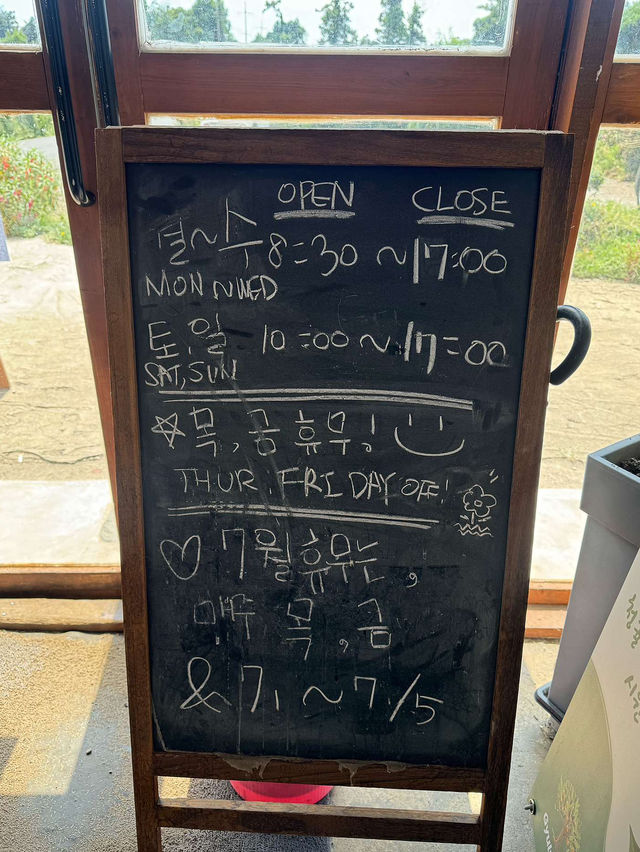 OPEN CLOSE
월~수 8:30 ~17:00
MON~WED
토,일 10:00~17:00
SAT,SUN
☆목,금 휴무!
THUR, FRI DAY OFF!
♡7월휴무는,
매주 목,금
& 7/1 ~ 7/5